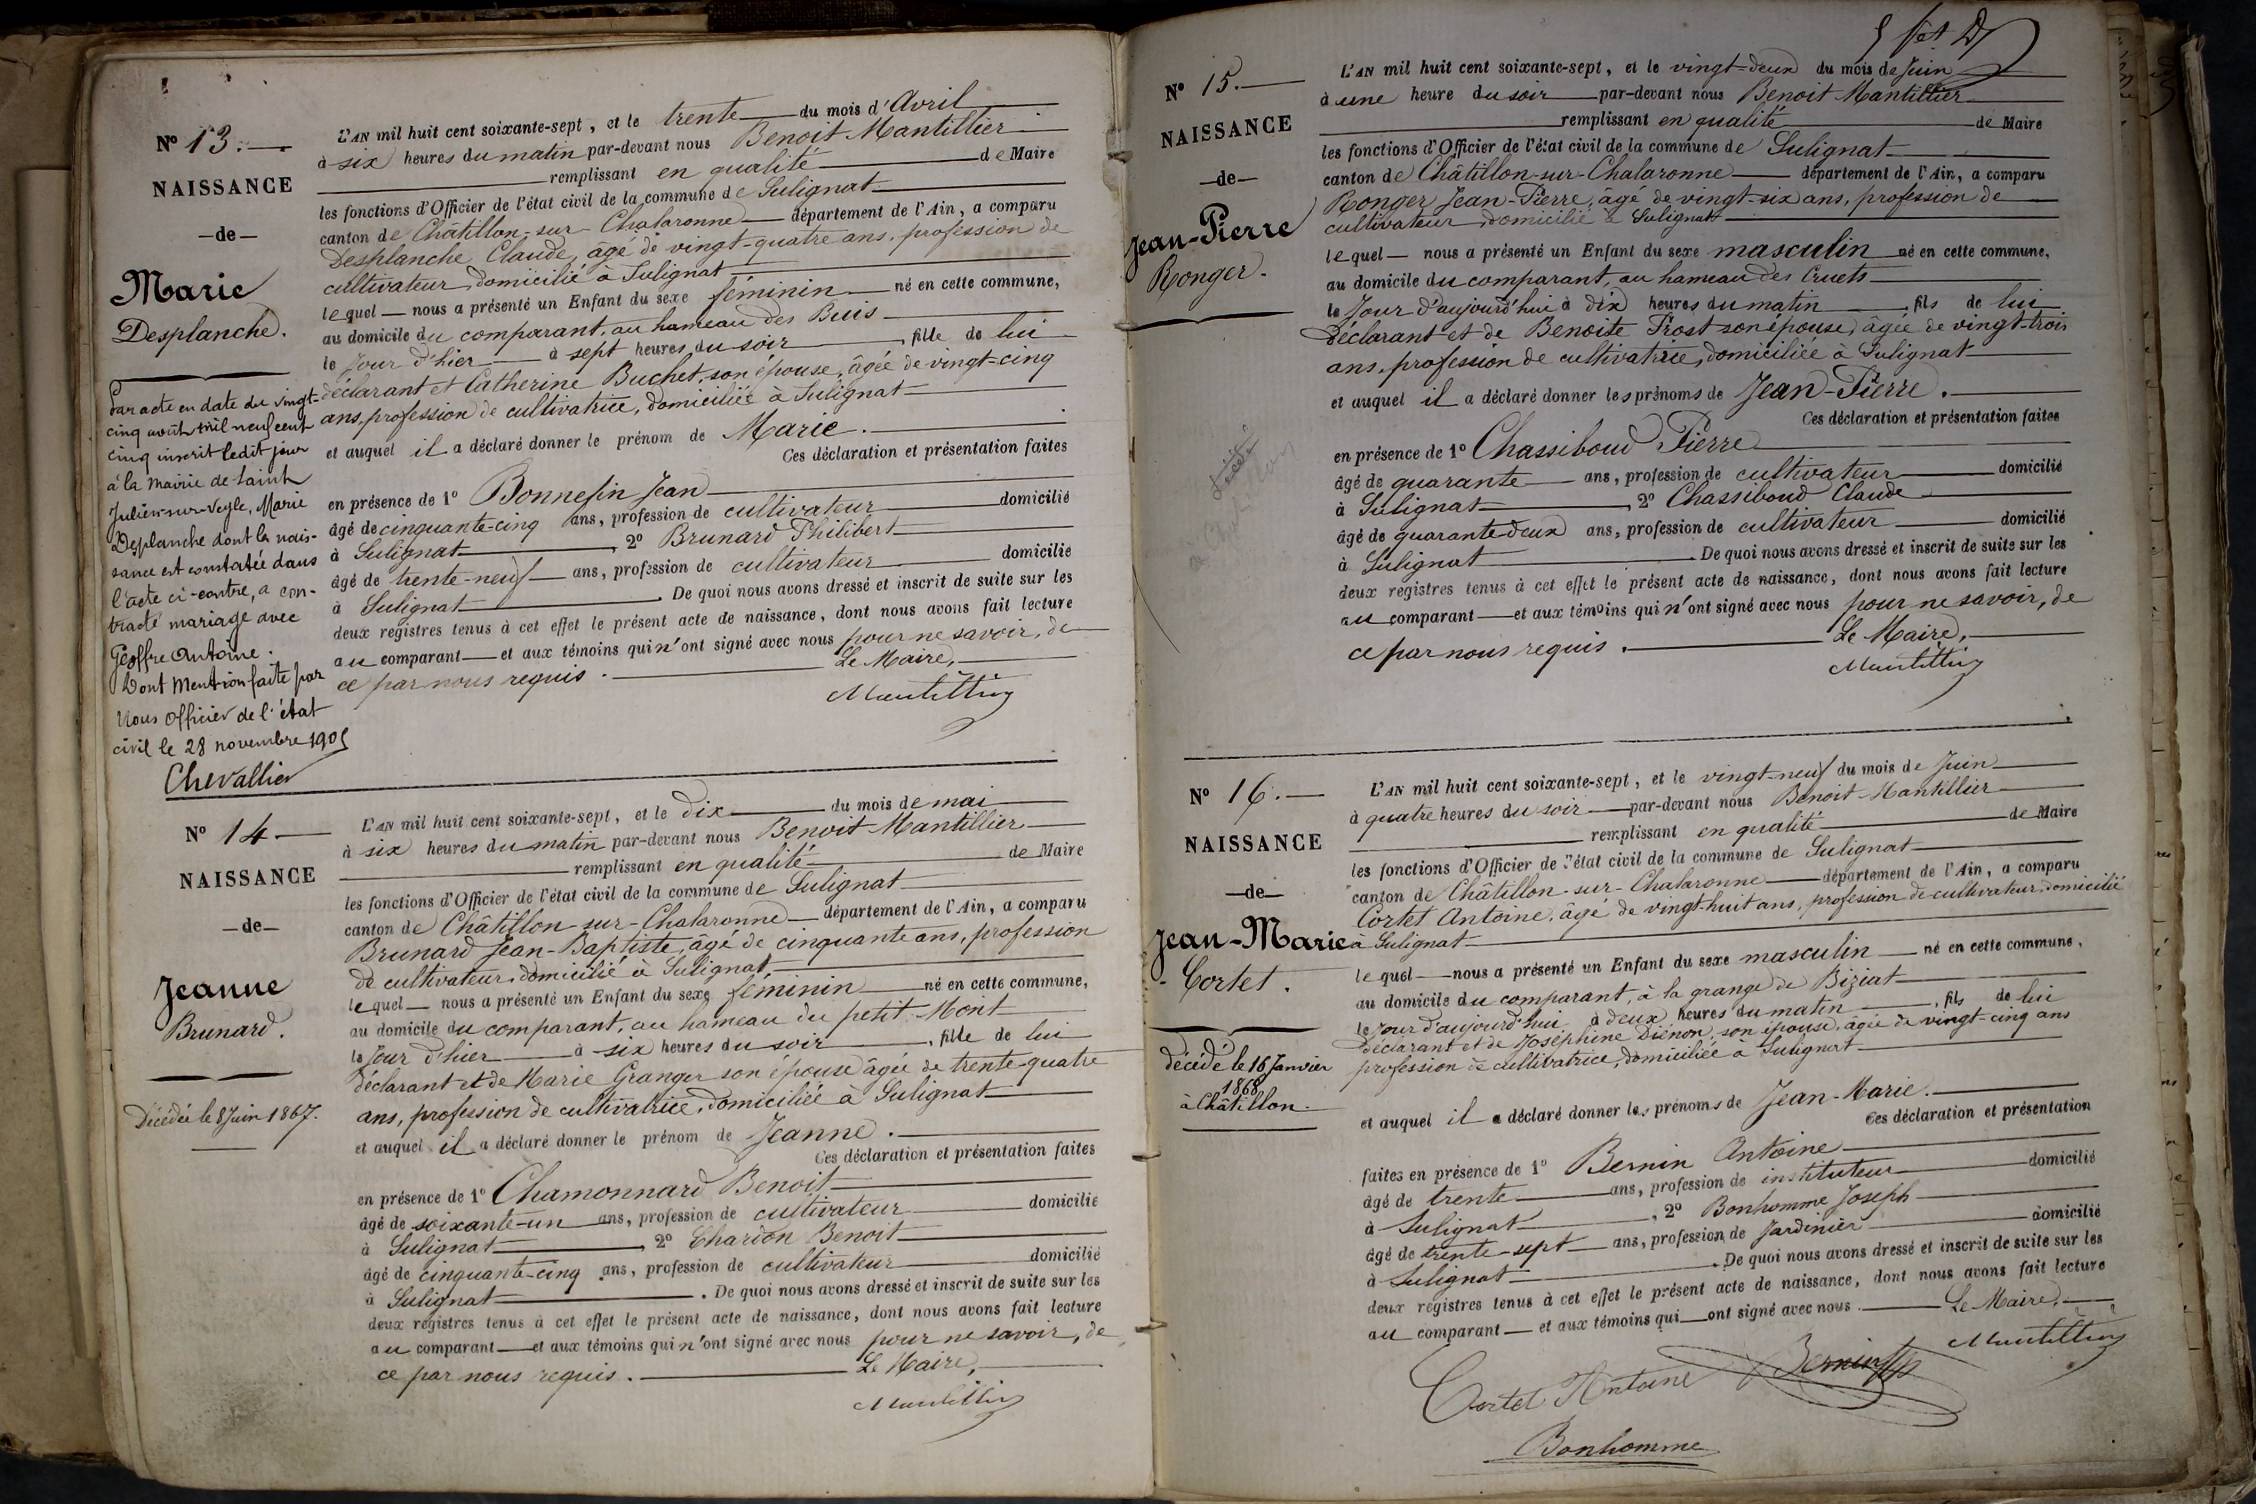 Nº 13.
NAISSANCE
de
Marie
Desplanche.
Par acte en date du vingt-
cinq août mil neuf cent
cinq inscrit ledit jour
à la Mairie de Saint
Julien-sur-Veyle, Marie
Desplanche dont la nais-
sance est constatée dans
l'acte ci-contre, a con-
tracté mariage avec
Geoffre Antoine.
Dont Mention faite par
Nous Officier de l'état
civil le 28 novembre 1905
Chevallier
L'AN mil huit cent soixante-sept, et le trente du mois d'Avril
à six heures du matin par-devant nous Benoit Mantillier
remplissant en qualité de Maire
les fonctions d'Officier de l'état civil de la commune de Sulignat
canton de Châtillon-sur-Chalaronne département de l'Ain, a comparu
Desplanche Claude, âgé de vingt-quatre ans, profession de
cultivateur, domicilié à Sulignat
lequel nous a présenté un Enfant du sexe féminin né en cette commune,
au domicile du comparant, au hameau des Buis
le Jour d'hier à sept heures du soir, fille de lui
déclarant et Catherine Buchet, son épouse, âgée de vingt-cinq
ans, profession de cultivatrice, domiciliée à Sulignat
et auquel il a déclaré donner le prénom de Marie.
Ces déclaration et présentation faites
en présence de 1º Bonnefin Jean
âgé de cinquante-cinq ans, profession de cultivateur domicilié
à Sulignat, 2º Brunard Philibert
âgé de trente-neuf ans, profession de cultivateur domicilié
à Sulignat. De quoi nous avons dressé et inscrit de suite sur les
deux registres tenus à cet effet le présent acte de naissance, dont nous avons fait lecture
au comparant et aux témoins qui n'ont signé avec nous pour ne savoir, de
ce par nous requis. Le Maire,
Mantillier
Nº 14
NAISSANCE
de
Jeanne
Brunard.
Décédée le 8 Juin 1867.
L'AN mil huit cent soixante-sept, et le dix du mois de mai
à six heures du matin par-devant nous Benoit Mantillier
remplissant en qualité de Maire
les fonctions d'Officier de l'état civil de la commune de Sulignat
canton de Châtillon-sur-Chalaronne département de l'Ain, a comparu
Brunard Jean-Baptiste, âgé de cinquante ans, profession
de cultivateur, domicilié à Sulignat,
lequel nous a présenté un Enfant du sexe féminin né en cette commune,
au domicile du comparant, au hameau du petit-Mont
le Jour d'hier à six heures du soir, fille de lui
déclarant et de Marie Granger son épouse âgée de trente-quatre
ans, profession de cultivatrice, domiciliée à Sulignat
et auquel il a déclaré donner le prénom de Jeanne.
Ces déclaration et présentation faites
en présence de 1º Chamonnard Benoit
âgé de soixante-un ans, profession de cultivateur domicilié
à Sulignat, 2º Chardon Benoit
âgé de cinquante-cinq ans, profession de cultivateur domicilié
à Sulignat. De quoi nous avons dressé et inscrit de suite sur les
deux registres tenus à cet effet le présent acte de naissance, dont nous avons fait lecture
au comparant et aux témoins qui n'ont signé avec nous pour ne savoir, de
ce par nous requis. Le Maire,
Mantillier
Nº 15.
NAISSANCE
de
Jean-Pierre
Ronger.
L'AN mil huit cent soixante-sept, et le vingt-deux du mois de Juin
à une heure du soir par-devant nous Benoit Mantillier
remplissant en qualité de Maire
les fonctions d'Officier de l'état civil de la commune de Sulignat
canton de Châtillon-sur-Chalaronne département de l'Ain, a comparu
Ronger Jean-Pierre, âgé de vingt-six ans, profession de
cultivateur, domicilié à Sulignat
lequel nous a présenté un Enfant du sexe masculin né en cette commune,
au domicile du comparant, au hameau des Cruets
le Jour d'aujourd'hui à dix heures du matin, fils de lui
déclarant et de Benoite Prost son épouse, âgée de vingt-trois
ans, profession de cultivatrice, domiciliée à Sulignat
et auquel il a déclaré donner les prénoms de Jean-Pierre.
Ces déclaration et présentation faites
en présence de 1º Chassiboud Pierre
âgé de quarante ans, profession de cultivateur domicilié
à Sulignat, 2º Chassiboud Claude
âgé de quarante-deux ans, profession de cultivateur domicilié
à Sulignat. De quoi nous avons dressé et inscrit de suite sur les
deux registres tenus à cet effet le présent acte de naissance, dont nous avons fait lecture
au comparant et aux témoins qui n'ont signé avec nous pour ne savoir, de
ce par nous requis. Le Maire,
Mantillier
Nº 16.
NAISSANCE
de
Jean-Marie
Cortet.
Décédé le 16 Janvier
1868
à Châtillon.
L'AN mil huit cent soixante-sept, et le vingt-neuf du mois de Juin
à quatre heures du soir par-devant nous Benoit Mantillier
remplissant en qualité de Maire
les fonctions d'Officier de l'état civil de la commune de Sulignat
canton de Châtillon-sur-Chalaronne département de l'Ain, a comparu
Cortet Antoine, âgé de vingt-huit ans, profession de cultivateur, domicilié
à Sulignat
lequel nous a présenté un Enfant du sexe masculin né en cette commune,
au domicile du comparant, à la grange de Biziat
le Jour d'aujourd'hui à deux heures du matin, fils de lui
déclarant et de Joséphine Diénon, son épouse, âgée de vingt-cinq ans
profession de cultivatrice, domiciliée à Sulignat
et auquel il a déclaré donner les prénoms de Jean-Marie.
Ces déclaration et présentation
faites en présence de 1º Bernin Antoine
âgé de trente ans, profession de instituteur domicilié
à Sulignat, 2º Bonhomme Joseph
âgé de trente-sept ans, profession de Jardinier domicilié
à Sulignat. De quoi nous avons dressé et inscrit de suite sur les
deux registres tenus à cet effet le présent acte de naissance, dont nous avons fait lecture
au comparant et aux témoins qui ont signé avec nous. Le Maire,
Mantillier
Cortet Antoine Bernin
Bonhomme